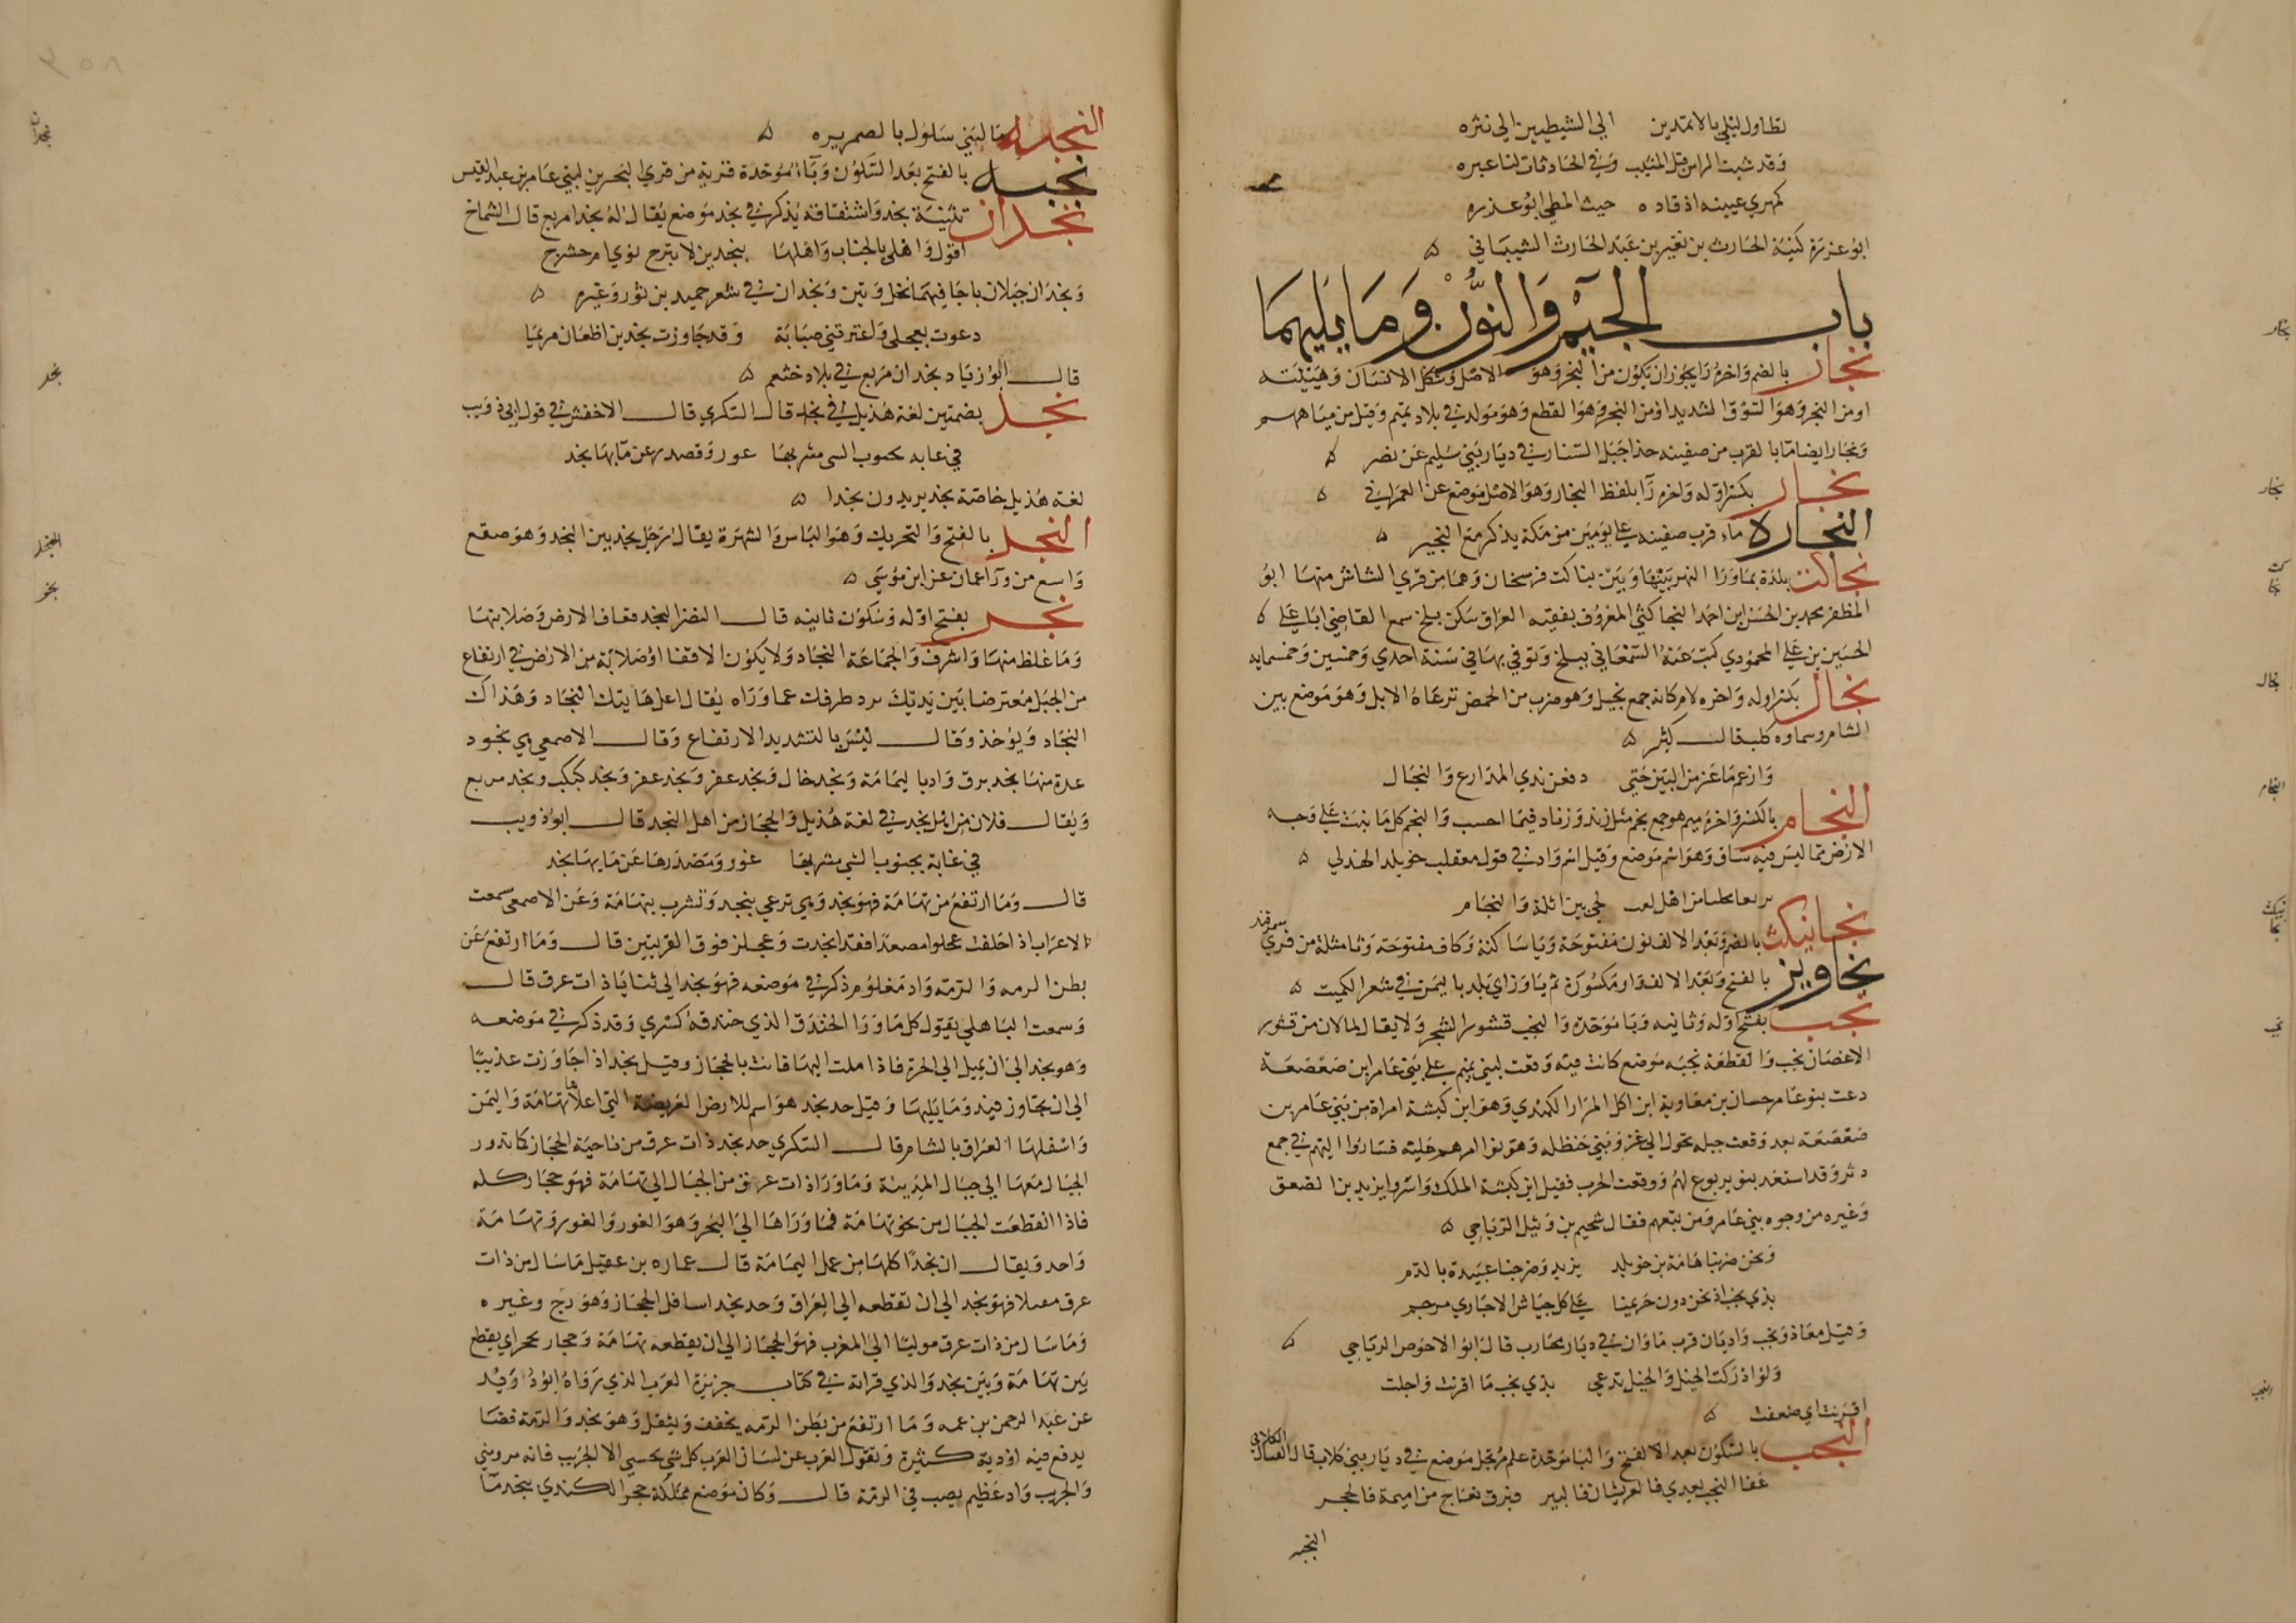 تطاول ليلي بالاثمدين الي الشيطبين الي نثره
وقد شبت الراس قبل المشيب وفي الحادثات لنا عبره
كمهري عيينه اذ قاده حيث المطي ابو عذره
ابو عزرة كنية الحارث بن نفير بن عبد الحارث الشيباني ه
باب الجيم والنون وما يليهما
نجار بالضم واخره را يجوز ان يكون من النجر وهو الاصل وشكل الانسان وهيئته
او من النجر وهو السوق الشديد او من النجر وهو القطع وهو مولد في بلاد تميم وقيل من مياههم
ونجار ايضا ما بالقرب من صفينه حذا جبل الستار في ديار بني سليم عن نصر ه
نجار بكسر اوله واخره را بلفظ النجار وهو الاصل موضع عن العمراني ه
النجاره ماء قرب صفينه علي يومين من مكة يذكر مع النجير ه
نجاكث بلدة بما ورا النهر بينها وبين بناكت فرسخان وهما من قري الشاش منها ابو
المظفر محمد بن الحسن بن احمد النجاكثي المعروف بفقيه العراق سكن بلخ سمع القاضي ابا علي
الحسين بن علي المحمودي كتب عنه السمعاني ببلخ وتوفي بها في سنة احدي وخمسين وخمسمايه
نجال بكسر اوله واخره لام كانه جمع نجيل وهو ضرب من الحمض ترعاه الابل وهو موضع بين
الشام وسماوه كلب قال كثير ه
وازعم ما عزمن البين حتي دفعن بذي المذارع والنجال
النجام بالكسر واخره ميم هو جمع نجم مثل زند وزناد فيما احسب والنجم كل ما نبت علي وجه
الارض مما ليس فيه ساق وهو اسم موضع وقيل اسم واد في قول معقل بن خويلد الهذلي ه
من اهل لحي بين اثلة والنجام
نجانيكث بالضم وبعد الالف نون مفتوحة ويا ساكنة وكاف مفتوحة وثا مثلثة من قري سمرقند
نجاويز بالفتح وبعد الالف واو مكسورة ثم يا وزاي بلد باليمن في شعر الكميت ه
نجب بفتح اوله وثانيه وبا موحدة والنجب قشور الشجر ولا يقال لما لان من قشور
الاغصان نجب والقطعة نجبه موضع كانت فيه وقعت لبني تميم علي بني عامر بن صعصعة
دعت بنو عامر حسان بن معاوية ابن اكل المرار الكندي وهو ابن كبشة امراة من بني عامر بن
صعصعة بعد وقعت جبله بحول الي غزو بني حنظله وهونوا امرهم عليه فساروا اليهم في جمع
دثر وقد استعد بنو يربوع لهم ووقعت الحرب فقيل ابن كبشة الملك واسروا يزيد بن الصعق
وغيره من وجوه بني عامر ومن تبعهم فقال سحيم بن وثيل الرياحي ه
ونحن ضربنا هامة بن خويلد يزيد وضرجنا عبيدة بالدم
بذي نجب اذ نحن دون حريمنا علي كل جياش الاجاري مرجم
وقيل معاذ ونجب واديان قرب ماوان في ديار محارب قال ابو الاحوص الرياحي ه
ولو ادركت الخيل والخيل تدعي بذي نجب ما اقرنت واجلت
اقرنت اي ضعفت ه
النجب بالسكون بعد الالفتح والبا موحدة علم مرتجل موضع في ديار بني كلاب قال القتال الكلابي
عفا النجب بعدي فالعريشان فالبير فبرق نعاج من اميمة فالحجر
النجبه
نجار
نجار
نجاكث
نجال
النجام
نجانيكث
نجب
النجب
٣٥٨
النجبه ما لبني سلول بالضمريره ه
نجبه بالفتح بعد السكون وباء موحدة قرية من قري البحرين لبني عامر بن عبد القيس
نجدان تثنية نجد واشتقاقه يذكر في نجد موضع يقال له نجدا مريع قال الشماخ
اقول واهلي بالجناب واهلها بنجدين لا تبرح نوي ام حشرج
ونجدان جبلان باجا فيهما نخل وتين ونجدان في شعر حميد بن ثور وغيره ه
دعوت بعجلي واعترتني صبابة وقد جاوزت نجدين اظعان مريما
قال ابو زياد نجدان مربع في بلاد خثعم ه
نجد بضمتين لغة هذيل في نجد قال السكري قال الاخفش في قول ابي ذويب
في عانه بجنوب السي مشربها عور ومصدرها عن مائها نجد
لغة هذيل خاصة نجد يريدون نجدا ه
النجد بالفتح والتحريك وهو الباس والشهرة يقال رجل نجد بين النجد وهو صقع
واسع من ورا عمان عن ابن موسي ه
نجد بفتح اوله وسكون ثانيه قال النضر النجد قفاف الارض وصلابتها
وما غلظ منها واشرف والجماعة النجاد ولا يكون الا قفا او صلابة من الارض في ارتفاع
من الجبل معترضا بين يديك يرد طرفك عما وراه يقال اعل هاتيك النجاد وهذاك
النجاد ويوخذ وقال ليس بالشديد الارتفاع وقال الاصمعي هي نجود
عدة منها نجد برق واد باليمامة ونجد خال ونجد عفر ونجد كبكب ونجد مربع
ويقال فلان من اهل نجد في لغة هذيل والحجاز من اهل النجد قال ابو ذويب
في عانة بجنوب السي مشربها غور ومصدرها عن مايها نجد
قال وما ارتفع من تهامة فهو نجد وهي ترعي بنجد وتشرب بتهامة وعن الاصمعي سمعت
الاعراب اذ اخلفت عجلزا مصعدا فقد انجدت وعجلز فوق القريتين قال وما ارتفع عن
بطن الرمه والرمة واد معلوم ذكر في موضعه فهو نجد الي ثنايا ذات عرق قال
وسمعت الباهلي يقول كل ما ورا الخندق الذي خندقه كسري وقد ذكر في موضعه
وهو نجد الي ان تميل الي الحرة فاذا املت اليها فانت بالحجاز وقيل نجد اذا جاوزت عذيبا
الي ان تجاوز فيد وما يليها وقيل حد نجد هو اسم للارض العريضة التي اعلاها تهامة واليمن
واسفلها العراق بالشام قال السكري حد نجد ذات عرق من ناحية الحجاز كما تدور
الجبال معها الي جبال المدينة وما ورا ذات عرق من الجبال الي تهامة فهو حجاز كله
فاذا انقطعت الجبال من نحو تهامة فما وراها الي البحر وهو الغور والغور وتهامة
واحد ويقال ان نجدا كلها من عمل اليمامة قال عماره بن عقيل ما سال من ذات
عرق مقبلا فهو نجد الي ان تقطعه الي العراق وحد نجد اسافل الحجاز وهو دج وغيره
وما سال من ذات عرق موليا الي المغرب فهو الحجاز الي ان يقطعه تهامة وحجاز يحجز اي يقطع
بين تهامة وبين نجد والذي قراته في كتاب جزيرة العرب الذي رواه ابو د وفيد
عن عبد الرحمن بن عمه وما ارتفع من بطن الرمه يخفف ويثقل وهو نجد والرمة فضا
يدفع فيه اودية كثيرة وتقول العرب عن لسان العرب كل شي يحسي الا الجريب فانه مروبني
والجريب واد عظيم يصب في الرمة قال وكان موضع مملكة حجر الكندي بنجد ما
نجدان
نجد
النجد
نجد